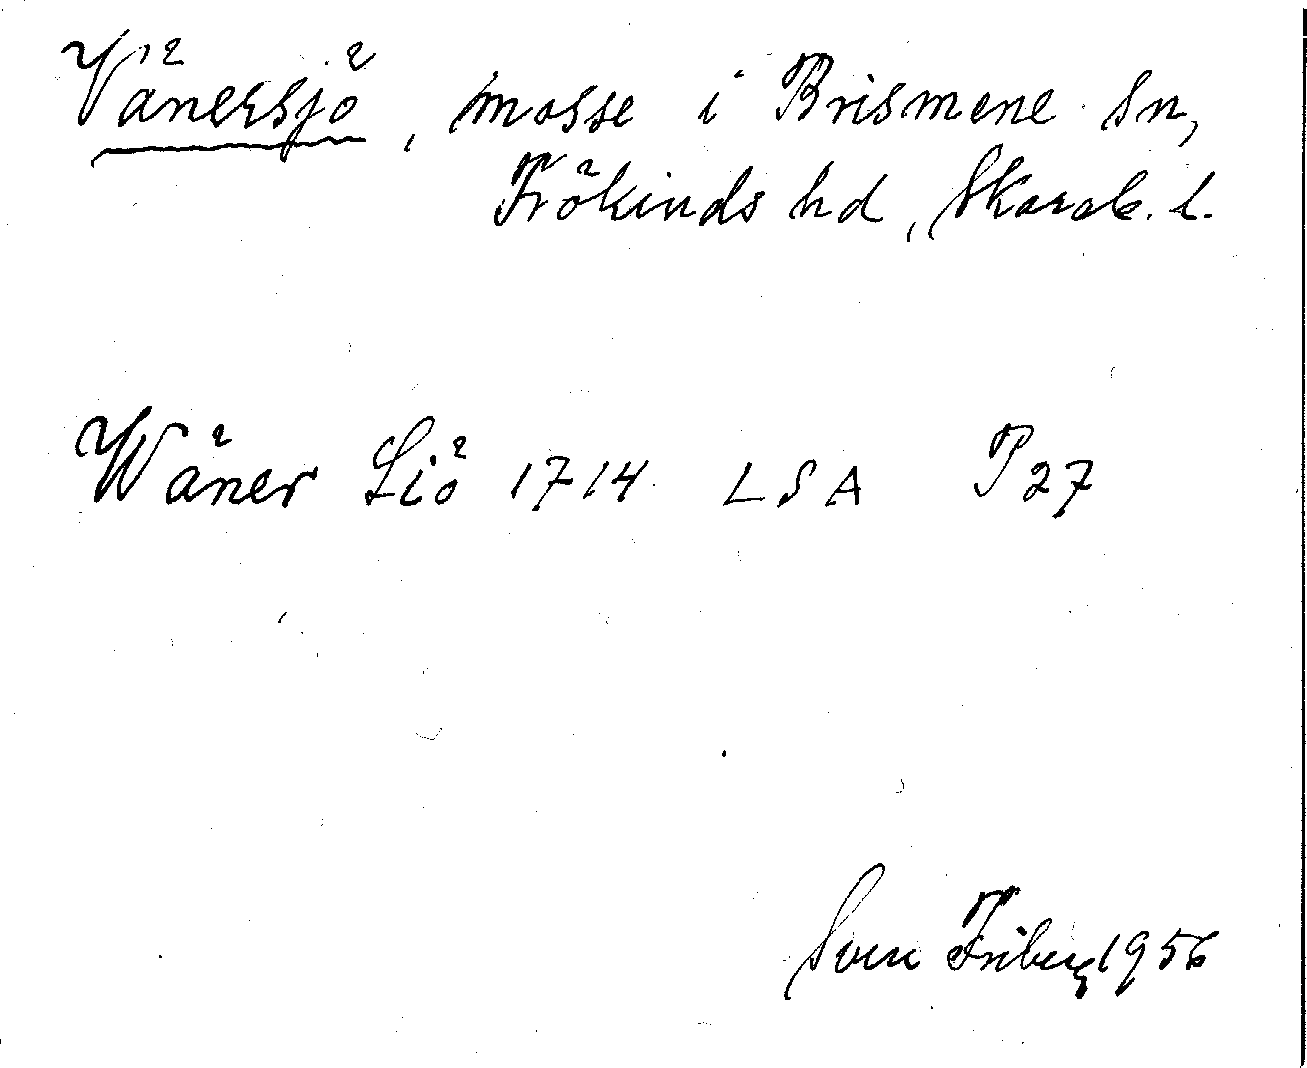 Vänersjö, mosse i Brismene sn,
Frökinds hd, Skarab. l.
Wäner Siö 1714 LSA P27
Sven Friberg 1956